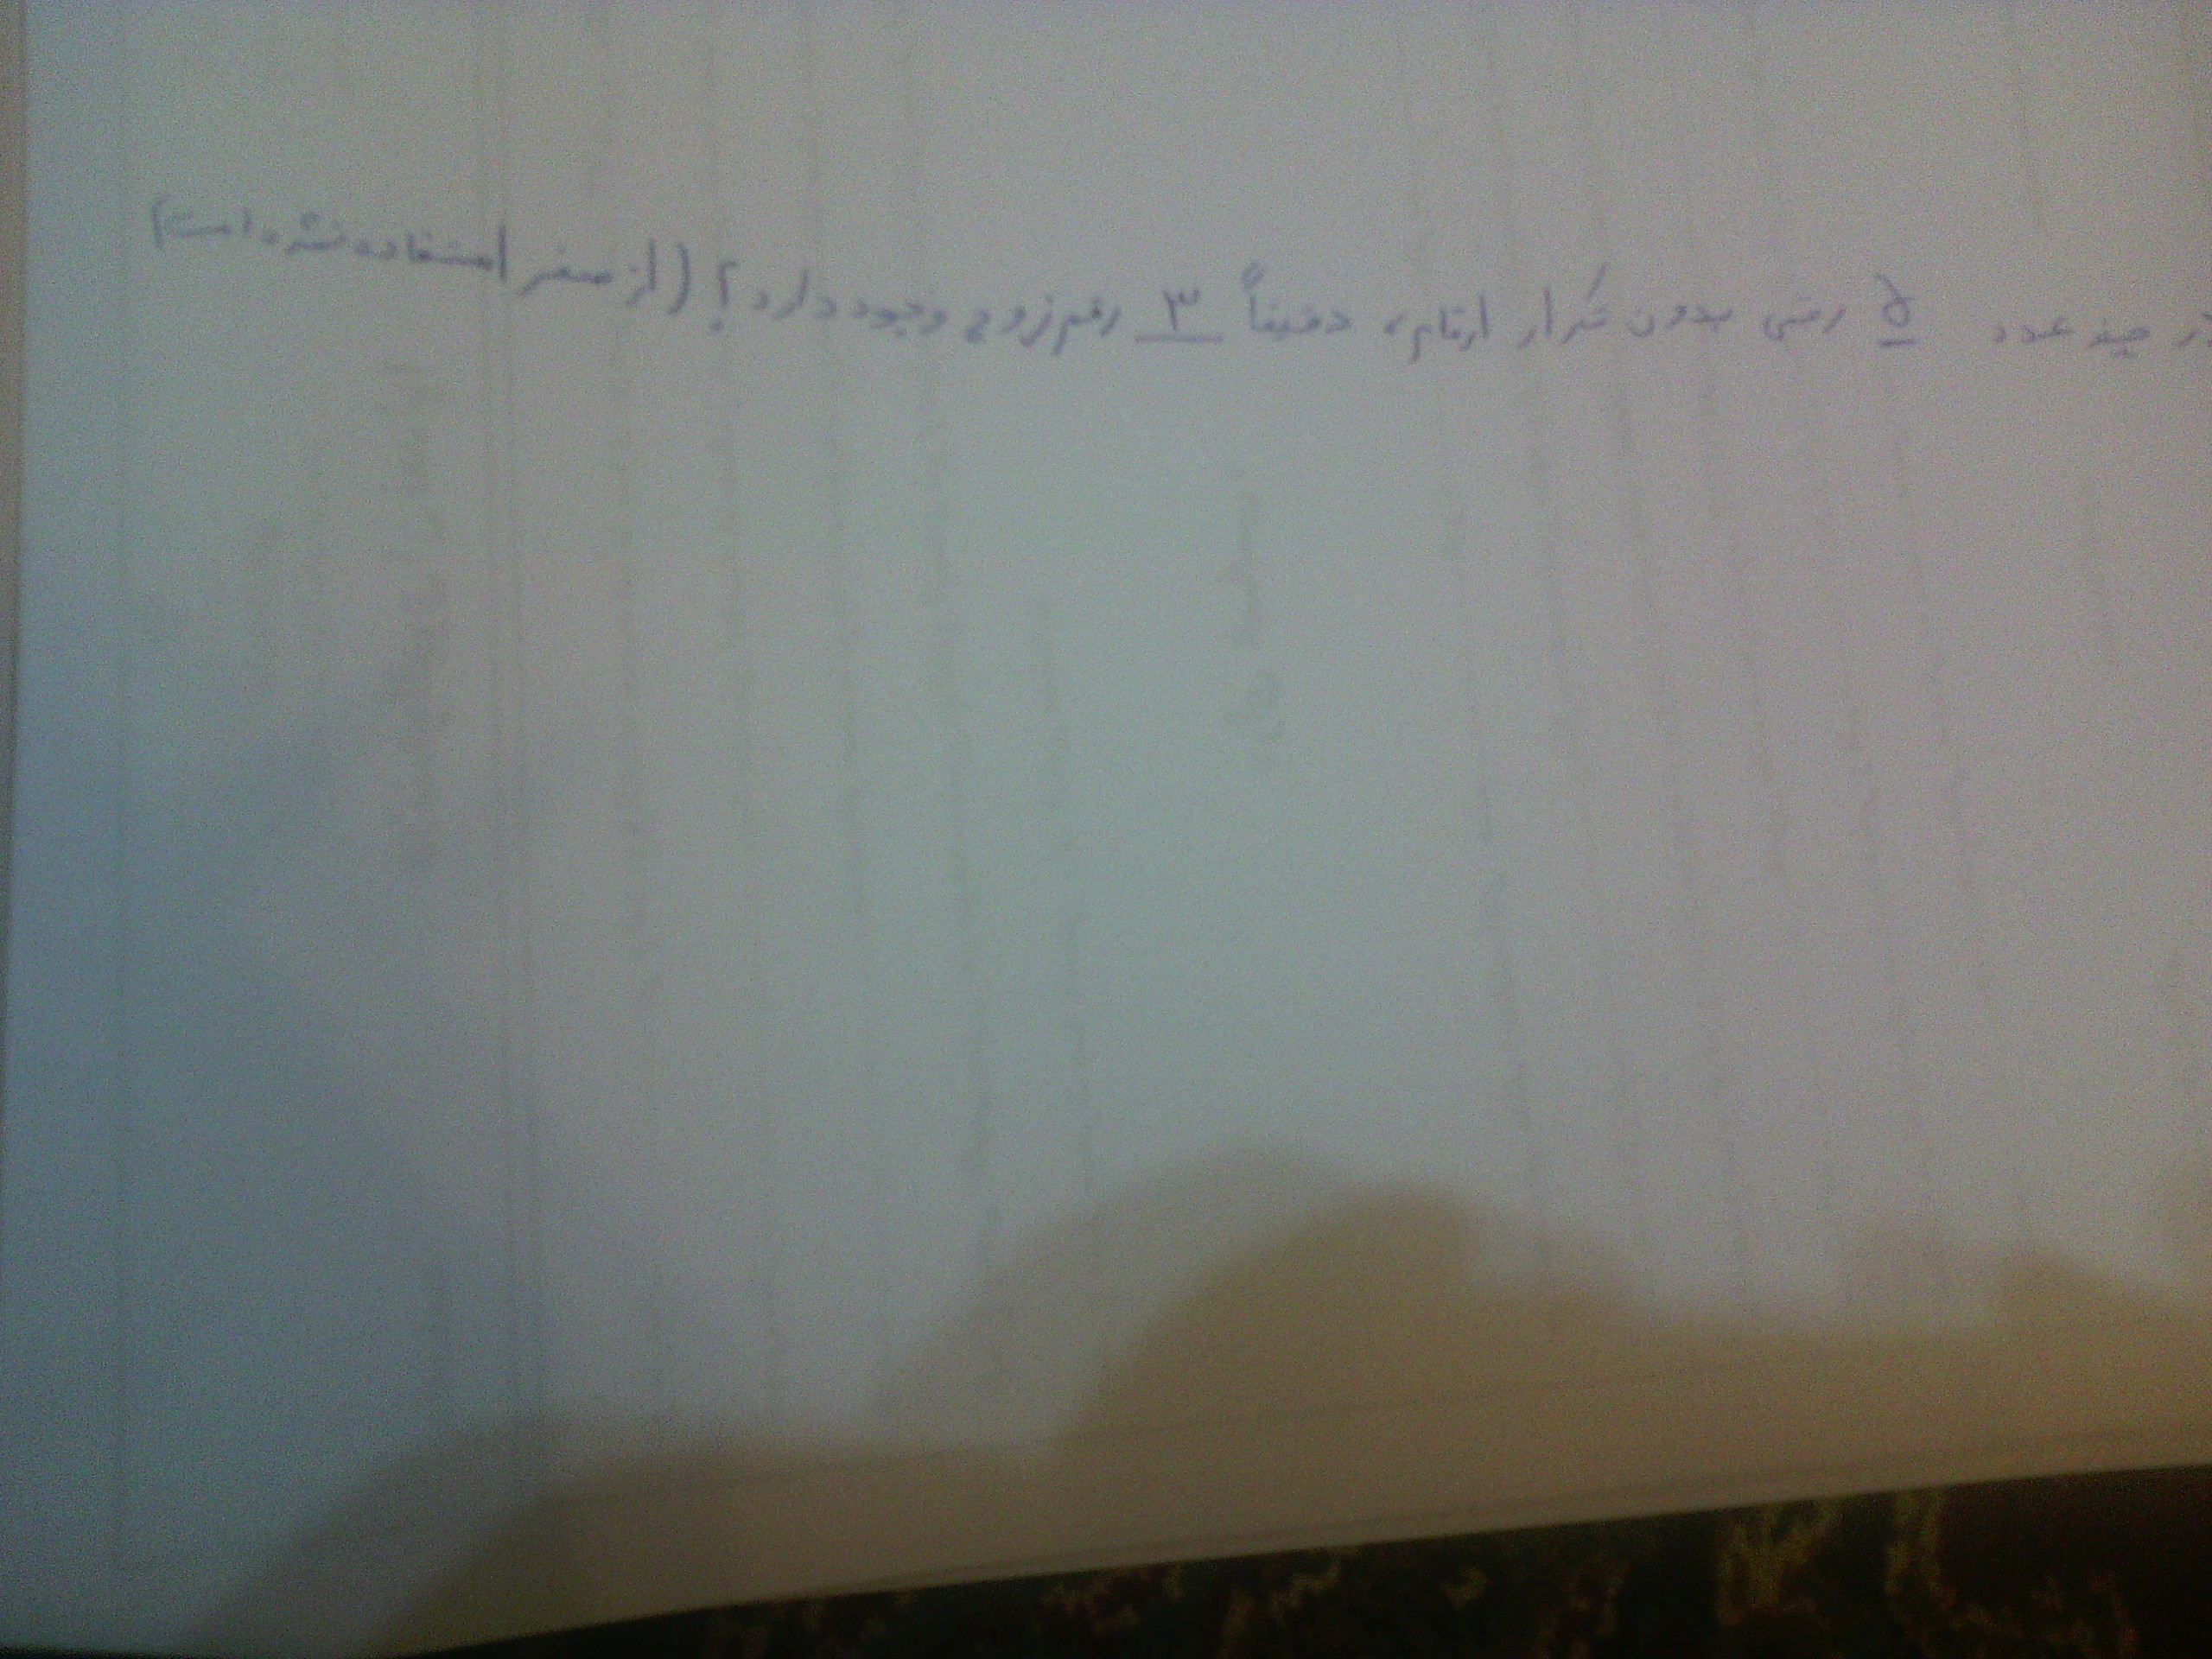 در چند عدد ۵ رقمی بدون تکرار ارقام، دقیقاً ۳ رقم زوج وجود دارد؟ (از صفر استفاده نشده است)